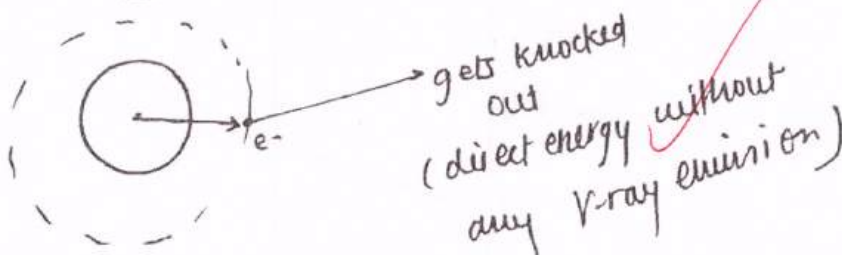 e-
gets knocked
out
(direct energy without
any γ-ray emission)